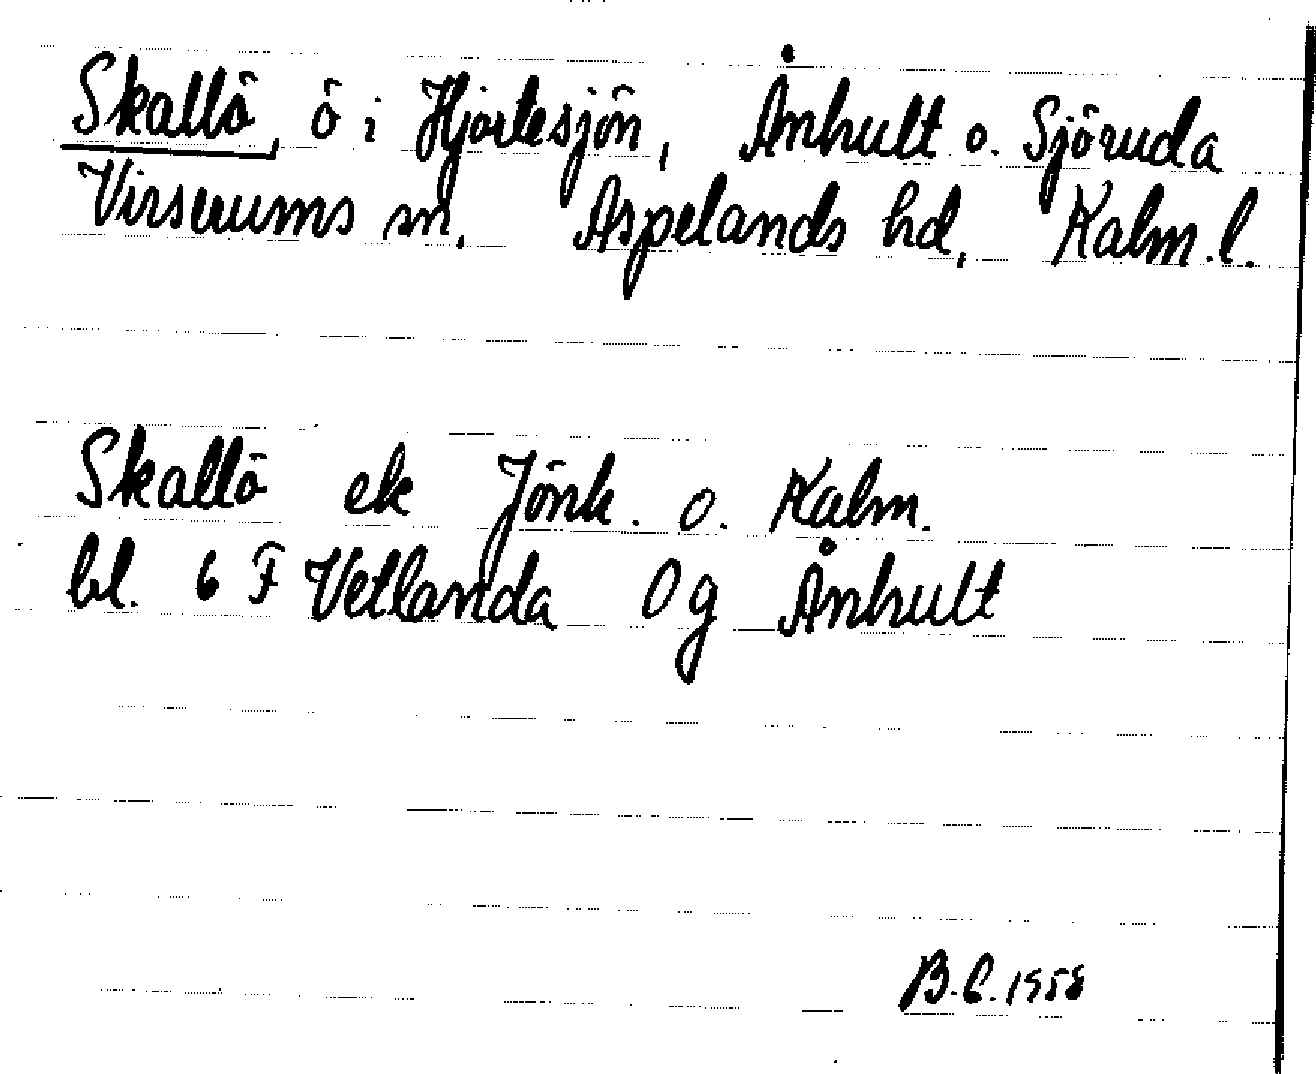 Skallö, ö i Hjortesjön, Ånhult o. Sjöruda
Virserums sn, Aspelands hd, Kalm. l.
Skallö ek Jönk. o. Kalm.
bl. 6 F Vetlanda 0 g Ånhult
B.E. 1958